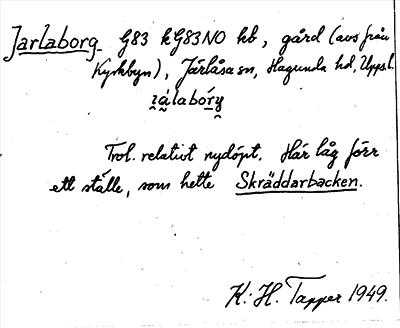 Jarlaborg G83 k G83NO kb, gård (avs från
Kyrkbyn), Järlåsa sn, Hagunda hd, Uppsl.
Trol. relativt nydöpt. Här låg förr
ett ställe, som hette Skräddarbacken.
K: H. Tapper 1949.